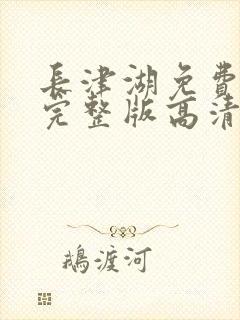 長津湖免費
完整版高清
鵝渡河